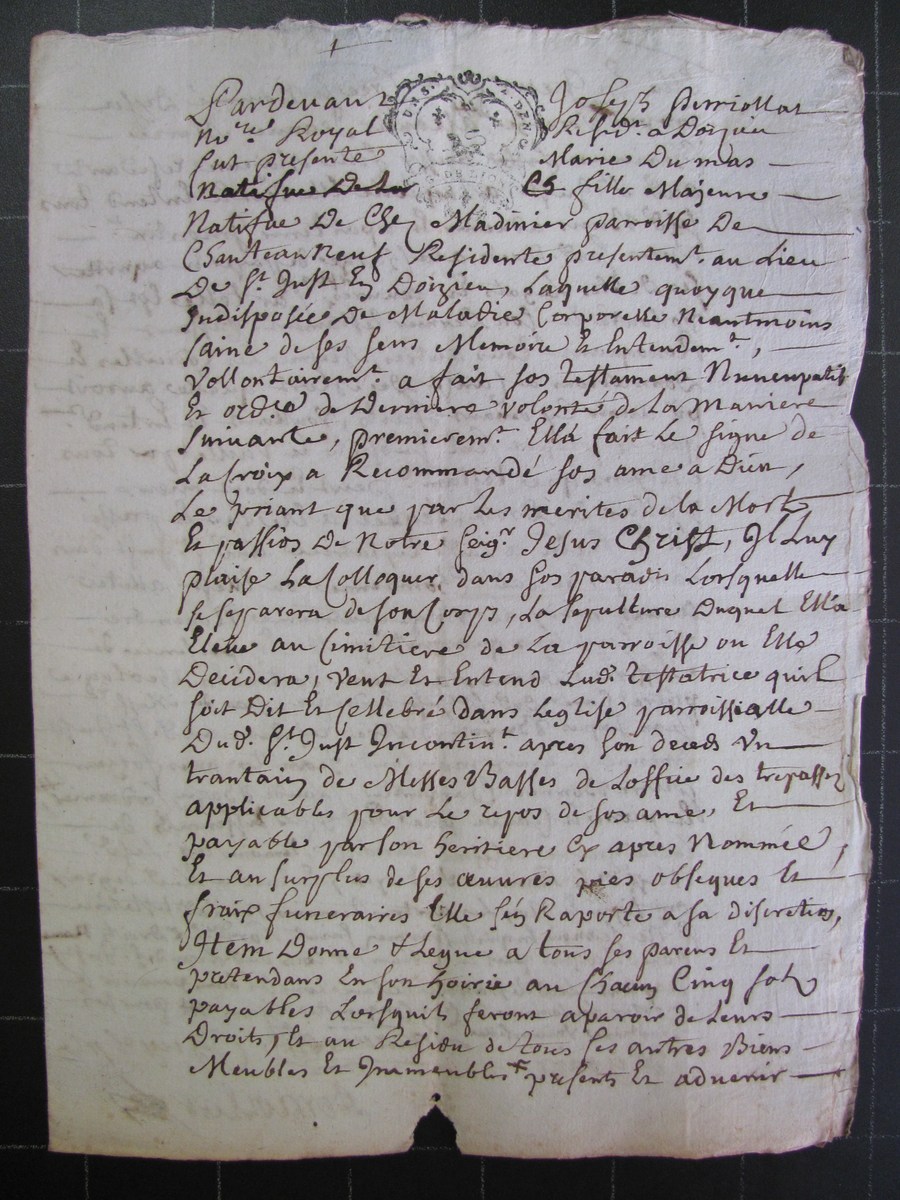 Pardevant Joseph Perriollat
No.re Royal Resid.t a Doizieu
fut presente Marie Dumas
fille Majeure
Natifue De Chez Madinier parroisse De
Chanteauneuf Residente presentem.t au Lieu
De S.t Just En Doizieu, Laquelle quoyque
Indisposée De Maladie Corporelle Neantmoins
saine de ses sens Memoire Et Entendem.t,
Vollontairem.t a fait son testament Nuncupatif
Et ord.re de Derniere volonté de La Maniere
suivante, premierem.t Ella fait Le signe de
La Croix a Recommandé son ame a Dieu,
Le priant que par Les merites de la Mort
Et passion De Notre Seig.r Jesus Christ, Il Luy
plaise La Colloquer dans son paradis Lorsquelle
se separera de son Corps, La sepulture Duquel Ella
Eleüe au Cimitiere de La parroisse ou Elle
Decidera, veut Et Entend Lad. testatrice quil
soit Dit Et Cellebré dans Leglise parroissialle
Dud. S.t Just Incontin.t apres son deceds Un
trantain de Messes Basses de Loffice des trepassez
applicables pour Le repos de son ame, Et
payable par son heritiere Cy apres Nommée,
Et au surplus de ses œuvres pies obseques Et
fraix funeraires Elle sen Raporte a sa discretion,
Item Donne & Legue a tous ses parens Et
pretendans En son hoirie au Chacun Cinq sols
payables Lorsquils feront aparoir de Leurs
Droits, Et au Residu de tous ses autres Biens
Meubles Et Immeubles presents Et advenir